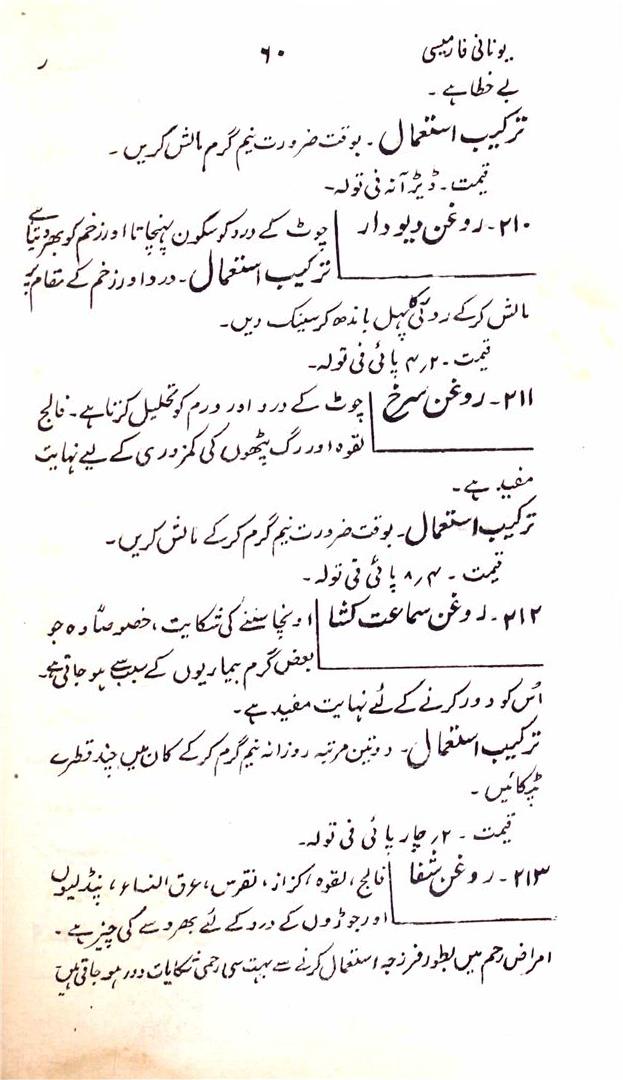 یونانی فارمیسی ۶۰ ر
بے خطا ہے ۔
ترکیب استعمال ۔ بوقت ضرورت نیم گرم مالش کریں ۔
قیمت ۔ ڈیڑ آنہ فی تولہ ۔
۲۱۰ ۔ روغن دیودار چوٹ کے درد کو سکون پہنچاتا اور زخم کو بھر دیتا ہے
ترکیب استعمال ۔ درد اور زخم کے مقام پر
مالش کرکے روئی کا پہل باندھ کر سینک دیں ۔
قیمت ۔ ۲؍۴ پائی فی تولہ ۔
۲۱۱ ۔ روغن سرخ چوٹ کے درد اور ورم کو تحلیل کرتا ہے ۔ فالج
لقوہ اور رگ پٹھوں کی کمزوری کے لیے نہایت
مفید ہے ۔
ترکیب استعمال ۔ بوقت ضرورت نیم گرم کرکے مالش کریں ۔
قیمت ۔ ۴؍۸ پائی فی تولہ ۔
۲۱۲ ۔ روغن سماعت کشا اونچا سننے کی شکایت ، خصوصاً وہ جو
بعض گرم بیماریوں کے سبب سے ہو جاتی ہے ۔
اُس کو دور کرنے کے لئے نہایت مفید ہے ۔
ترکیب استعمال ۔ دو تین مرتبہ روزانہ نیم گرم کرکے کان میں چند قطرے
ٹپکائیں ۔
قیمت ۔ ۲؍ چار پائی فی تولہ ۔
۲۱۳ ۔ روغن شفا فالج ، لقوہ ، کزاز ، نقرس ، عرق النساء ، پنڈلیوں
اور جوڑوں کے درد کے لئے بھروسے کی چیز ہے ۔
امراض رحم میں بطور فرزجہ استعمال کرنے سے بہت سی رحمی شکایات دور ہو جاتی ہیں